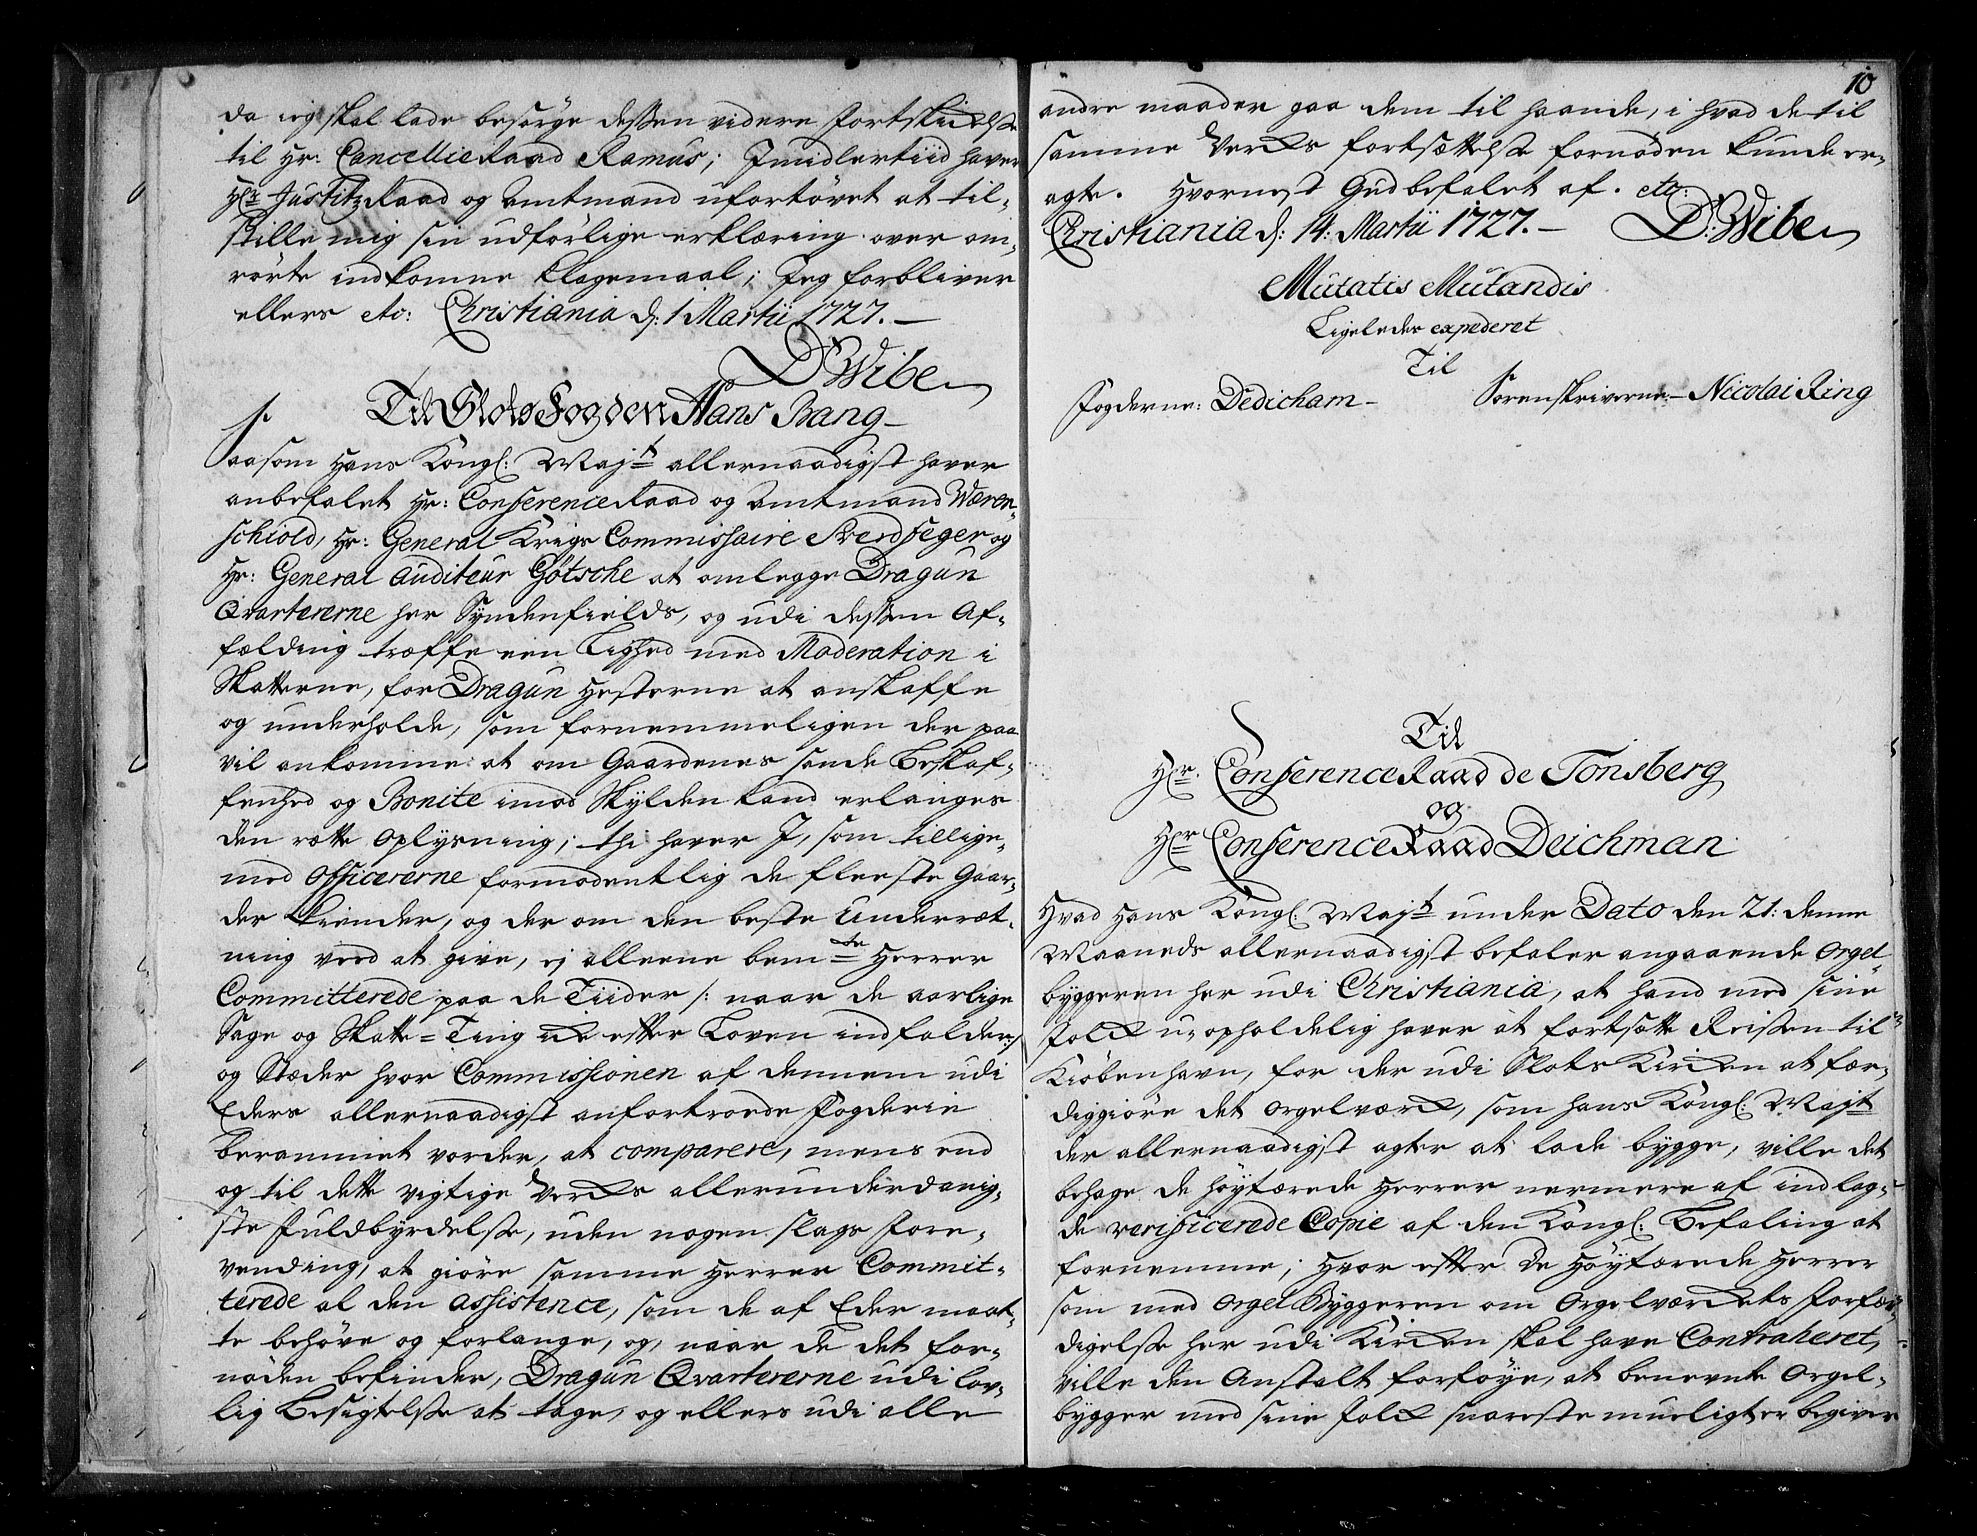 da ieg skal lade besørge dessen videre Fortskickelse
til Hr: Cancellie Raad Ramus; Imidlertiid haver
Hr Justitz Raad og Amtmand ufortøvet at til-
stille mig sin udførlige erklæring over om-
rørte indkomne Klagemaal; Jeg forbliver
ellers etc: Christiania d: 1 Martii 1727.
D Wibe
Til Slots Fogden Hans Bang
Saasom Hans Kongl: Majt allernaadigst haver
anbefalet Hr: Conference Raad og Amtmand Weren-
schiold, Hr: General Krigs Commissaire Sverdfeger og
Hr: General Auditeur Gøtsche at omlegge Dragun
Qvartererne her Syndenfields, og udi dessen Af-
fælding træffe een Lighed med Moderation i
Skatterne, for Dragun Hesterne at anskaffe
og underholde, som fornemmeligen der paa
vil ankomme at om Gaardenes sande Beskaf-
fenhed og Bonite imod Skylden kand erlanges
den rette Oplysning; thi haver I, som tillige-
med Officererne formodentlig de fleeste Gaar-
der kiender, og der om den beste Underret-
ning veed at give, ej alleene bemte Herrer
Committerede paa de Tiider /: naar de aarlige
Sage og Skatte-Ting icke efter Loven indfalder :/
og Stæder hvor Commissionen af dennem udi
Eders allernaadigst anfortroede Fogderie
berammet vorder, at comparere, mens end
og til dette vigtige Vercks allerunderdanig-
ste Fuldbyrdelse, uden nogen slags Fore-
vending, at giøre samme Herrer Commit-
terede al den assistence, som de af Eder maat-
te behøve og forlange, og, naar de det for-
nøden befinder, Dragun Qvartererne udi lov-
lig Besigtelse at tage, og ellers udi alle
10
andre maader gaa dem til haande, i hvad de til
samme Vercks fortsættelse fornøden kunde er-
agte. Hvornest Gud befalet af. etc:
Christiania d: 14: Martii 1727. D: Wibe
Mutatis Mutandis
Ligeledes expederet
Til
Fogderne: Dedicham Sorenskriverne Nicolai Ring
Til
Hr. Conference Raad de Tonsberg
og
Hr Conference Raad Deichman
Hvad Hans Kongl: Majt under Dato den 21: denne
Maaneds allernaadigst befaler angaaende Orgel-
byggeren her udi Christiania, at hand med sine
Folck u-opholdelig haver at fortsætte Reisen til
Kiøbenhavn, for der udi Slots Kircken at fær-
diggiøre det Orgelværck, som hans Kongl: Majt
der allernaadigst agter at lade bygge, ville det
behage de høytærede Herrer nermere af indlag-
de verificerede Copie af den Kongl: Befaling at
fornemme; Hvor efter De Høytærede Herrer
som med Orgel Byggeren om Orgelværckets Forfær-
digelse her udi Kircken skal have Contraheret,
ville den Anstalt forføye, at benevnte Orgel-
bygger med sine Folck snareste mueligt er begiver